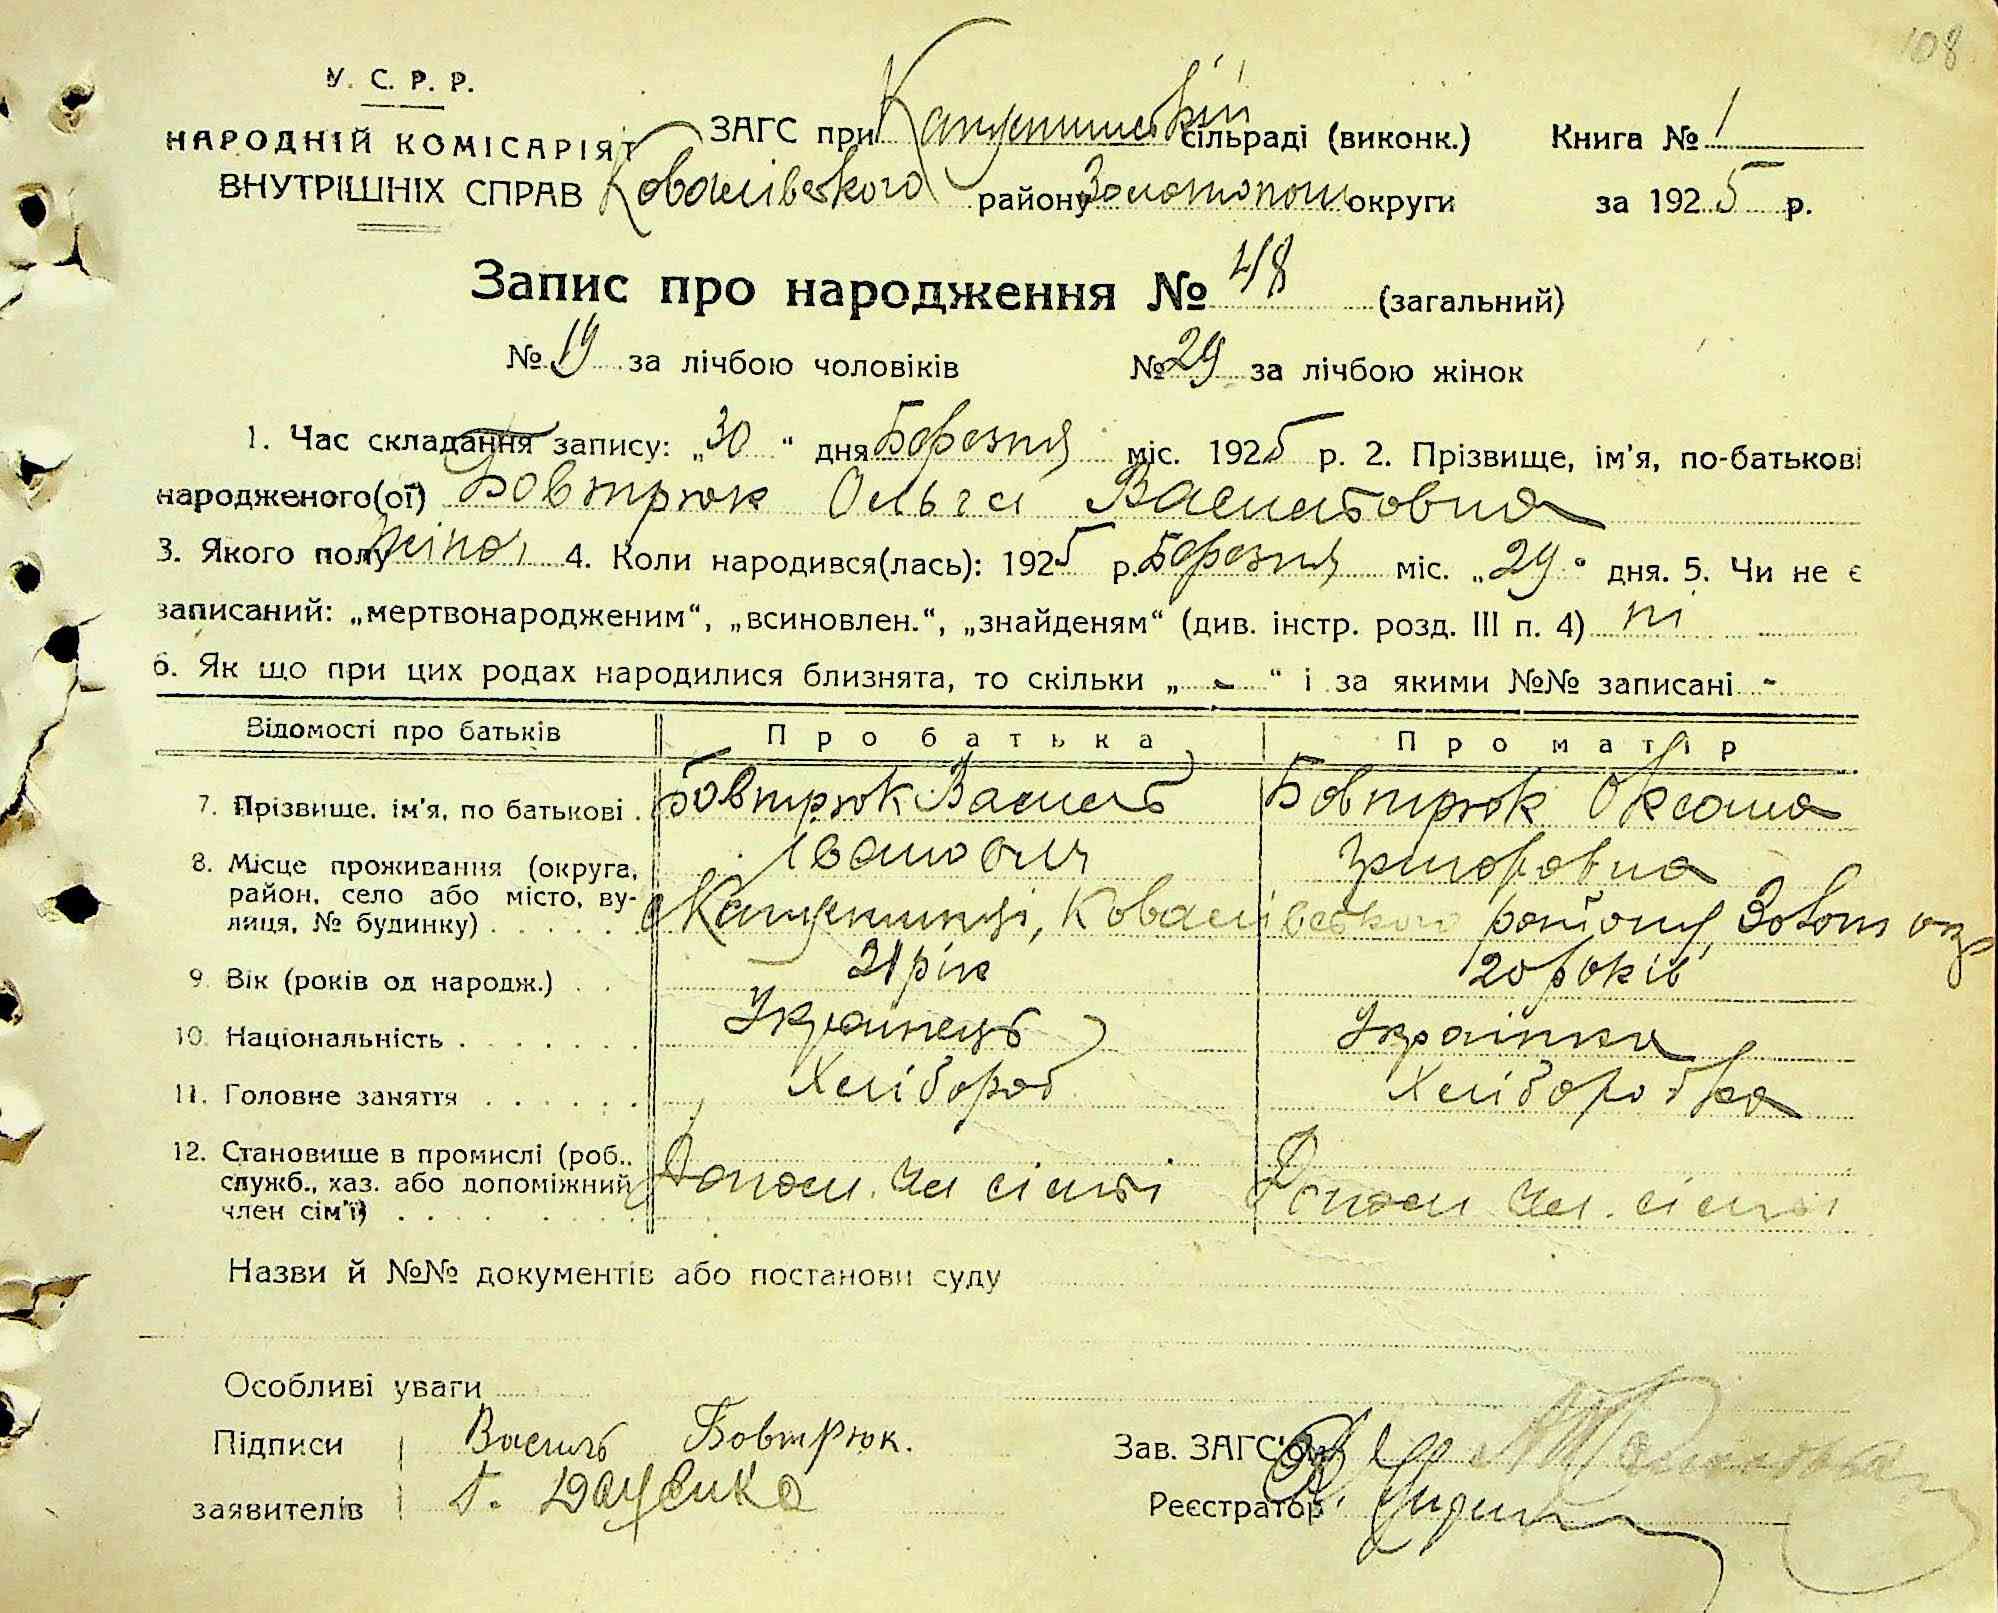 108
У. С. Р. Р.
НАРОДНІЙ КОМІСАРІЯТ
ВНУТРІШНІХ СПРАВ
ЗАГС при Капустинській сільраді (виконк.) Книга № 1
Ковалівського району Золотопош округи за 1925 р.
Запис про народження № 48 (загальний)
№ 19 за лічбою чоловіків № 29 за лічбою жінок
1. Час складання запису: „30“ дня Березня міс. 1925 р. 2. Прізвище, ім'я, по-батькові
народженого(ої) Бовтрюк Ольга Васильовна
3. Якого полу жіноч 4. Коли народився(лась): 1925 р. Березня міс. „29“ дня. 5. Чи не є
записаний: „мертвонародженим“, „всиновлен.“, „знайденям“ (див. інстр. розд. III п. 4) ні
6. Як що при цих родах народилися близнята, то скільки „ - “ і за якими №№ записані -
Відомості про батьків Про батька Про матір
7. Прізвище, ім'я, по батькові . Бовтрюк Василь Бовтрюк Оксана
Іванович
8. Місце проживання (округа, район, село або місто, ву-
лиця, № будинку) . . . . . . с Капустинці, Ковалівського району, Золот окр
9. Вік (років од народж.) . . 21 рік 20 років
10. Національність . . . . . . . Українець Українка
11. Головне заняття . . . . . . Хлібороб Хлібороб ка
12. Становище в промислі (роб.,
служб., хаз. або допоміжний
член сім'ї) . . . . Допом. чл сімьі Допом чл. сімьі
Назви й №№ документів або постанови суду
Особливі уваги
Підписи Василь Бовтрюк. Зав. ЗАГС'ом
заявителів Г. Даценко Реєстратор